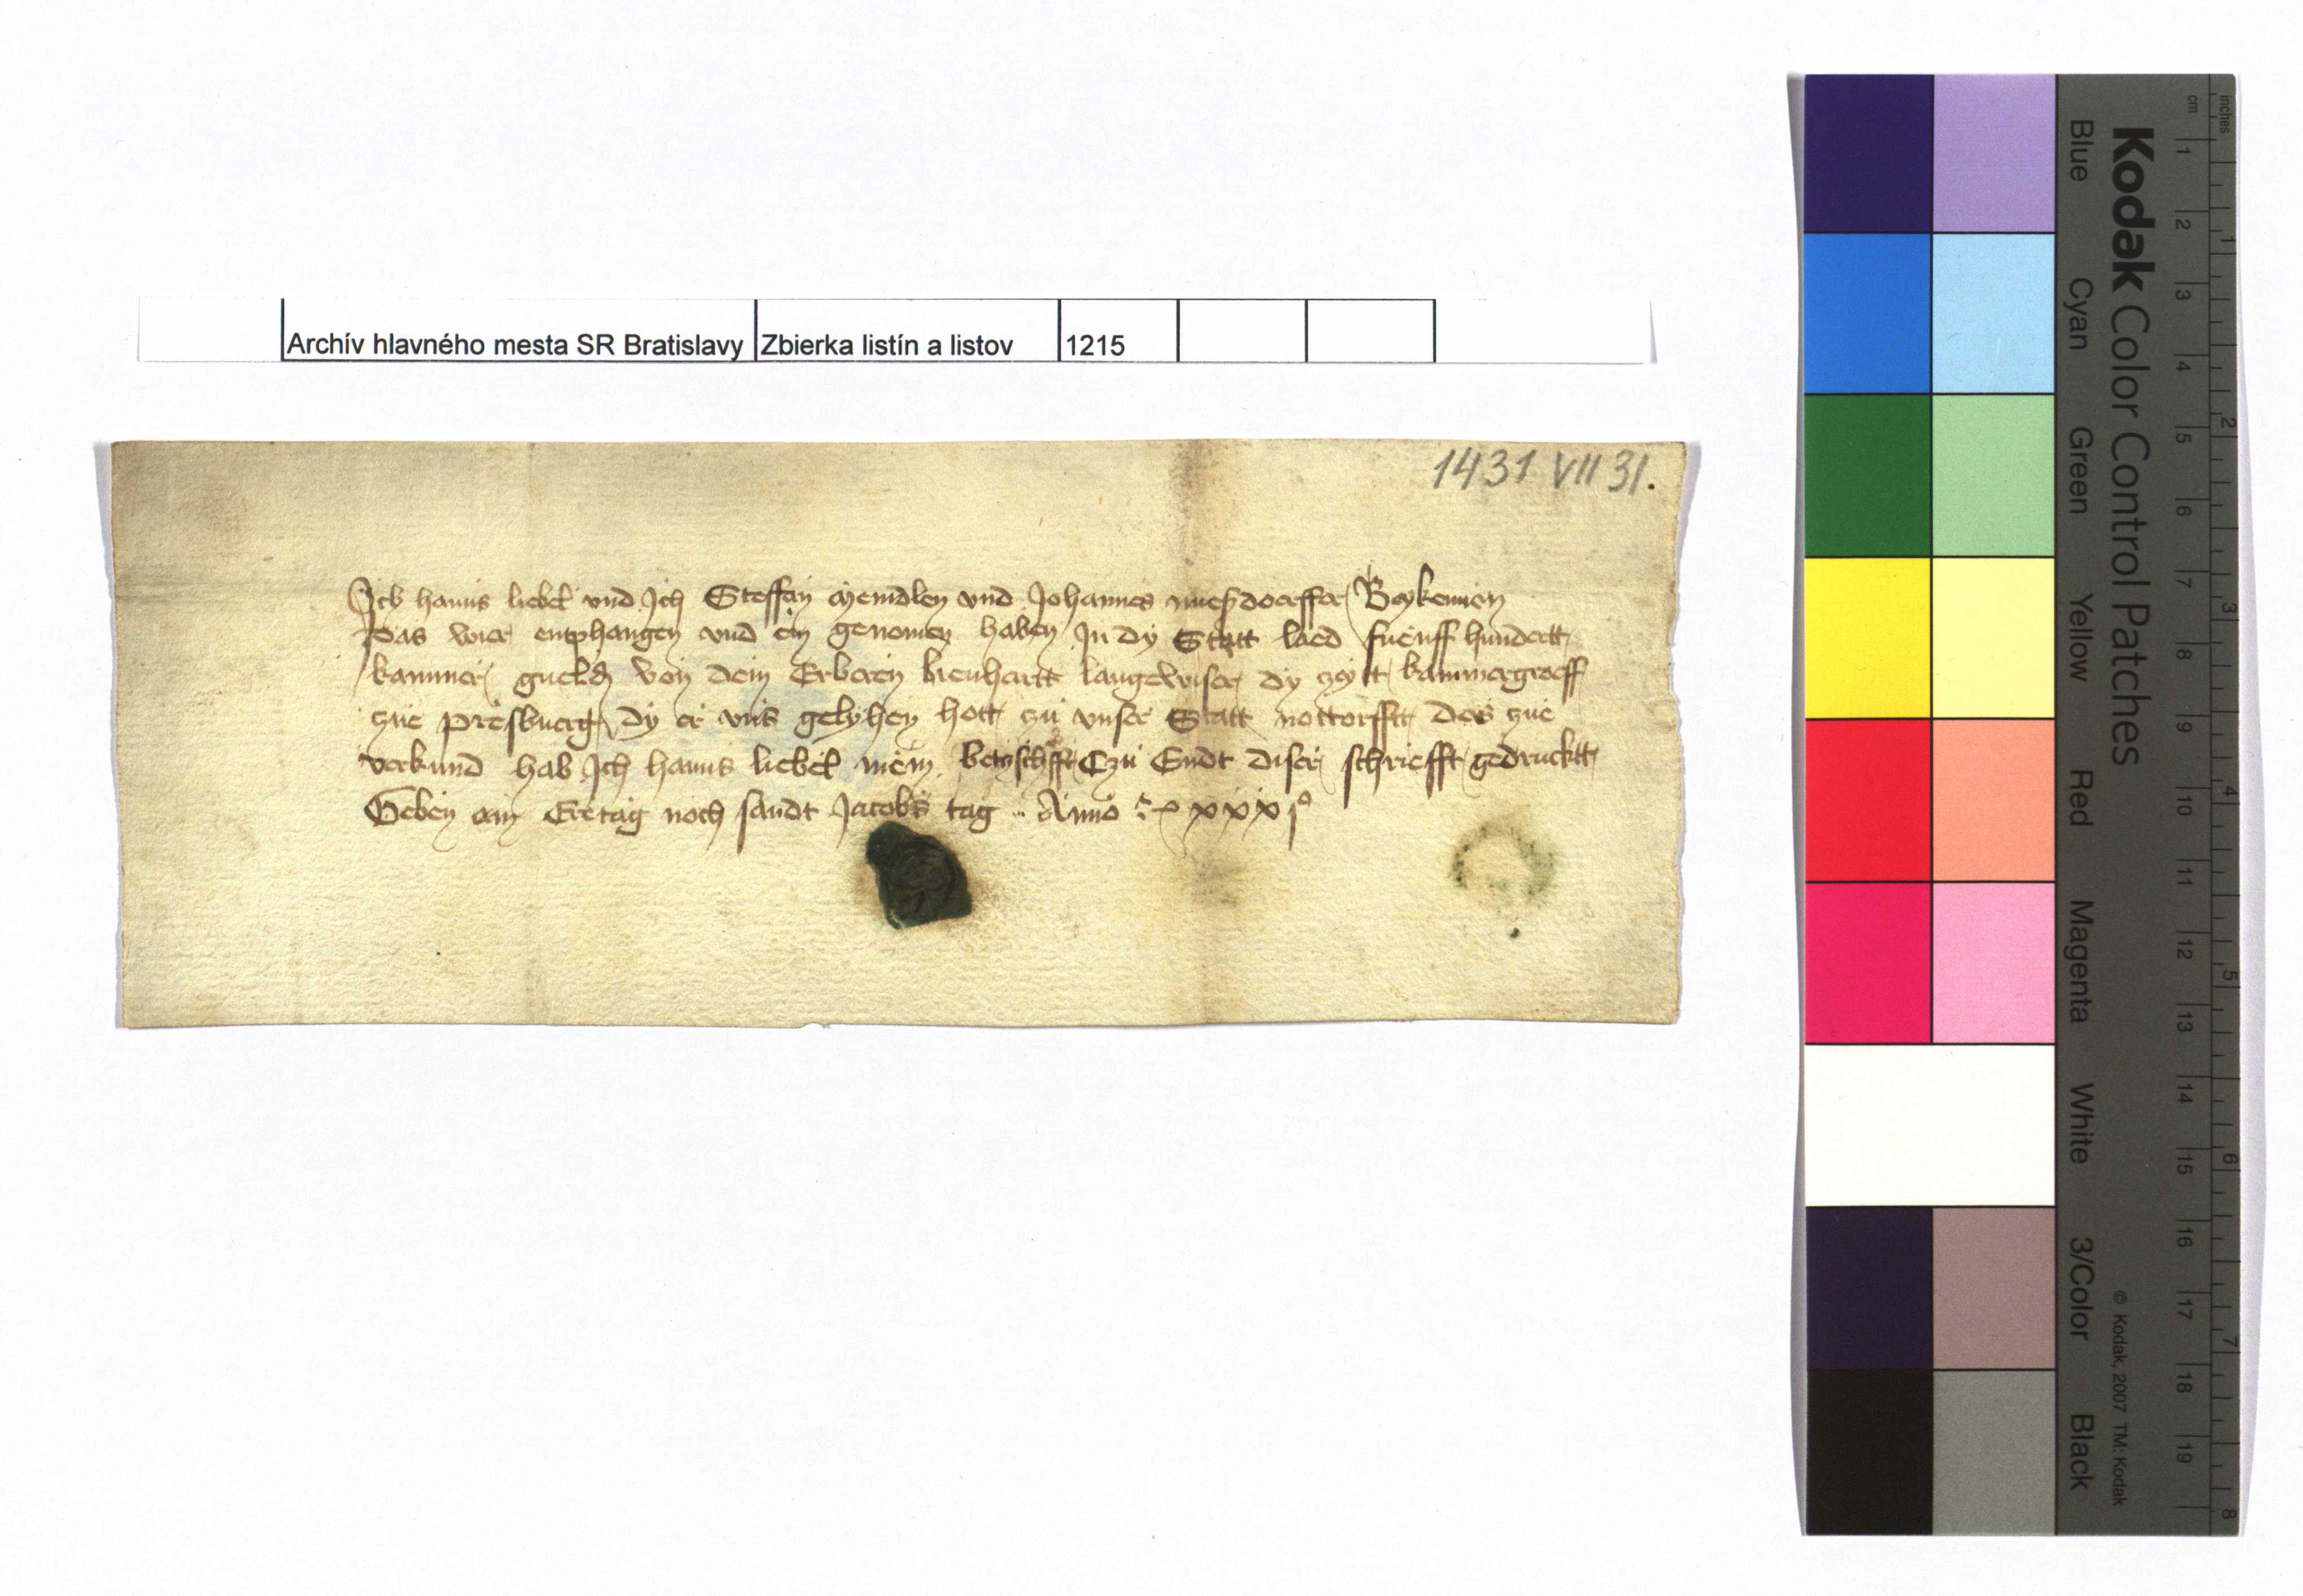 Archív hlavného mesta SR Bratislavy Zbierka listín a listov 1215
1431 VII 31.
Ich hanns liebel vnd Ich Steffan vnd Johannes Bekennen
Das wier entphangen vnd ein genomen haben In dy Statt laed fuenff hundertt
kammer gueldn von dem Erberen lienhartt dy zeytt kammergroeff
zue presbuerg dy er vns gelyhen hott zu vnser Statt nottorfftt des zue
verkund hab Ich hanns liebel mein betzschfft Czu Endt diser schriefft gedrucktt
Geben am Eretag noch sandt Jacobs tag Anno xxxjo
Kodak Color Control Patches
Blue Cyan Green Yellow Red Magenta White 3/Color Black
© Kodak, 2007 TM: Kodak
cm 1 2 3 4 5 6 7 8 9 10 11 12 13 14 15 16 17 18 19
inches 1 2 3 4 5 6 7 8